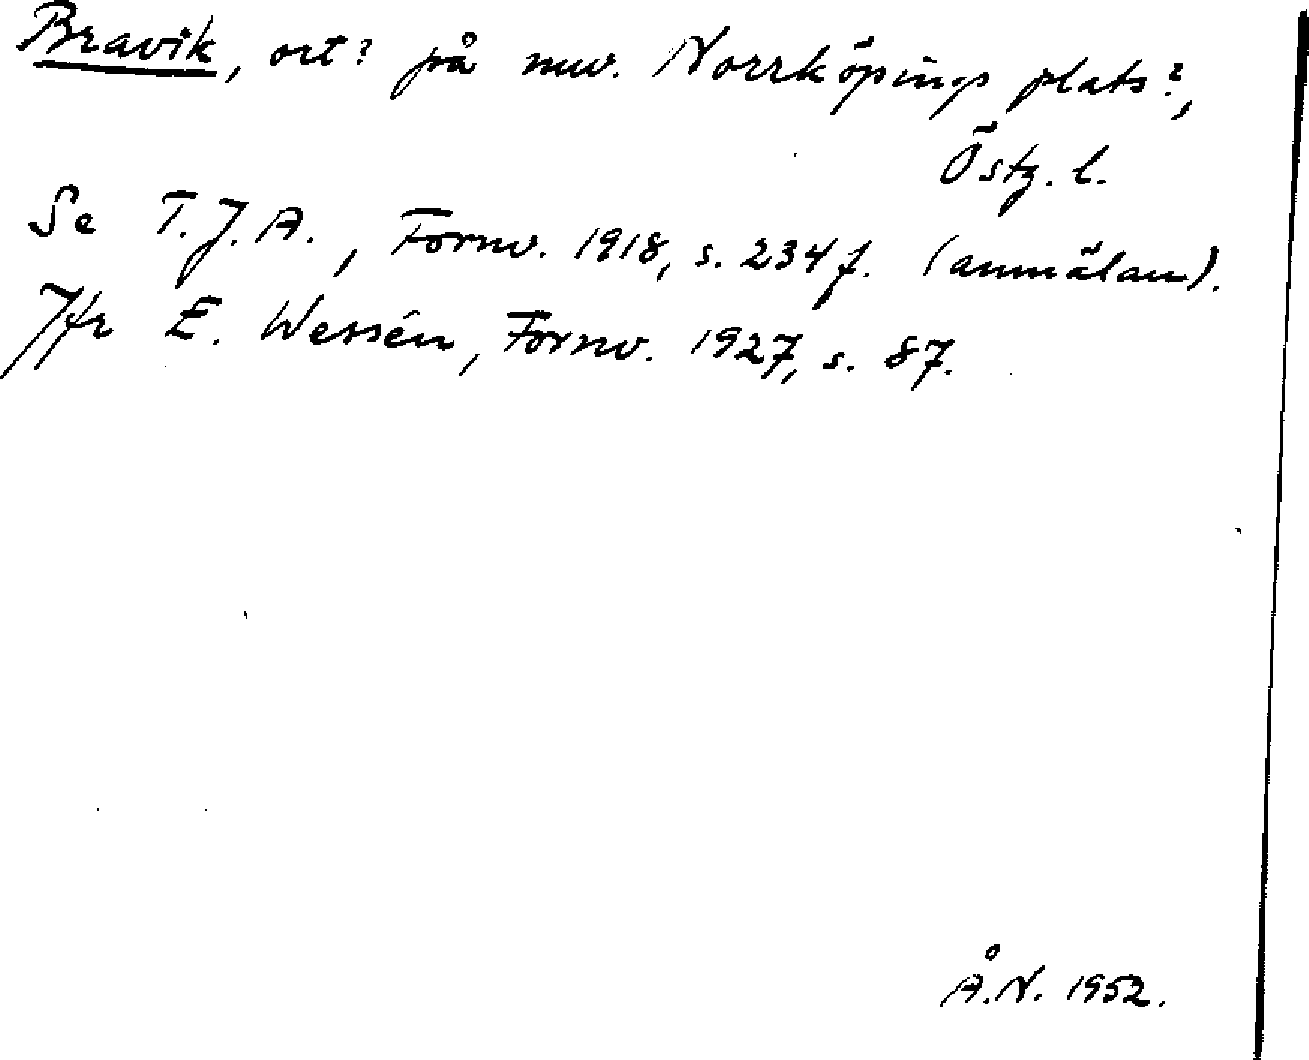 Bravik, ort? på nuv. Norrköpings plats?,
Östg. l.
Se T.J.A., Fornv. 1918, s. 234 f. (anmälan).
Jfr E. Wessén, Fornv. 1927, s. 87.
Å.N. 1952.